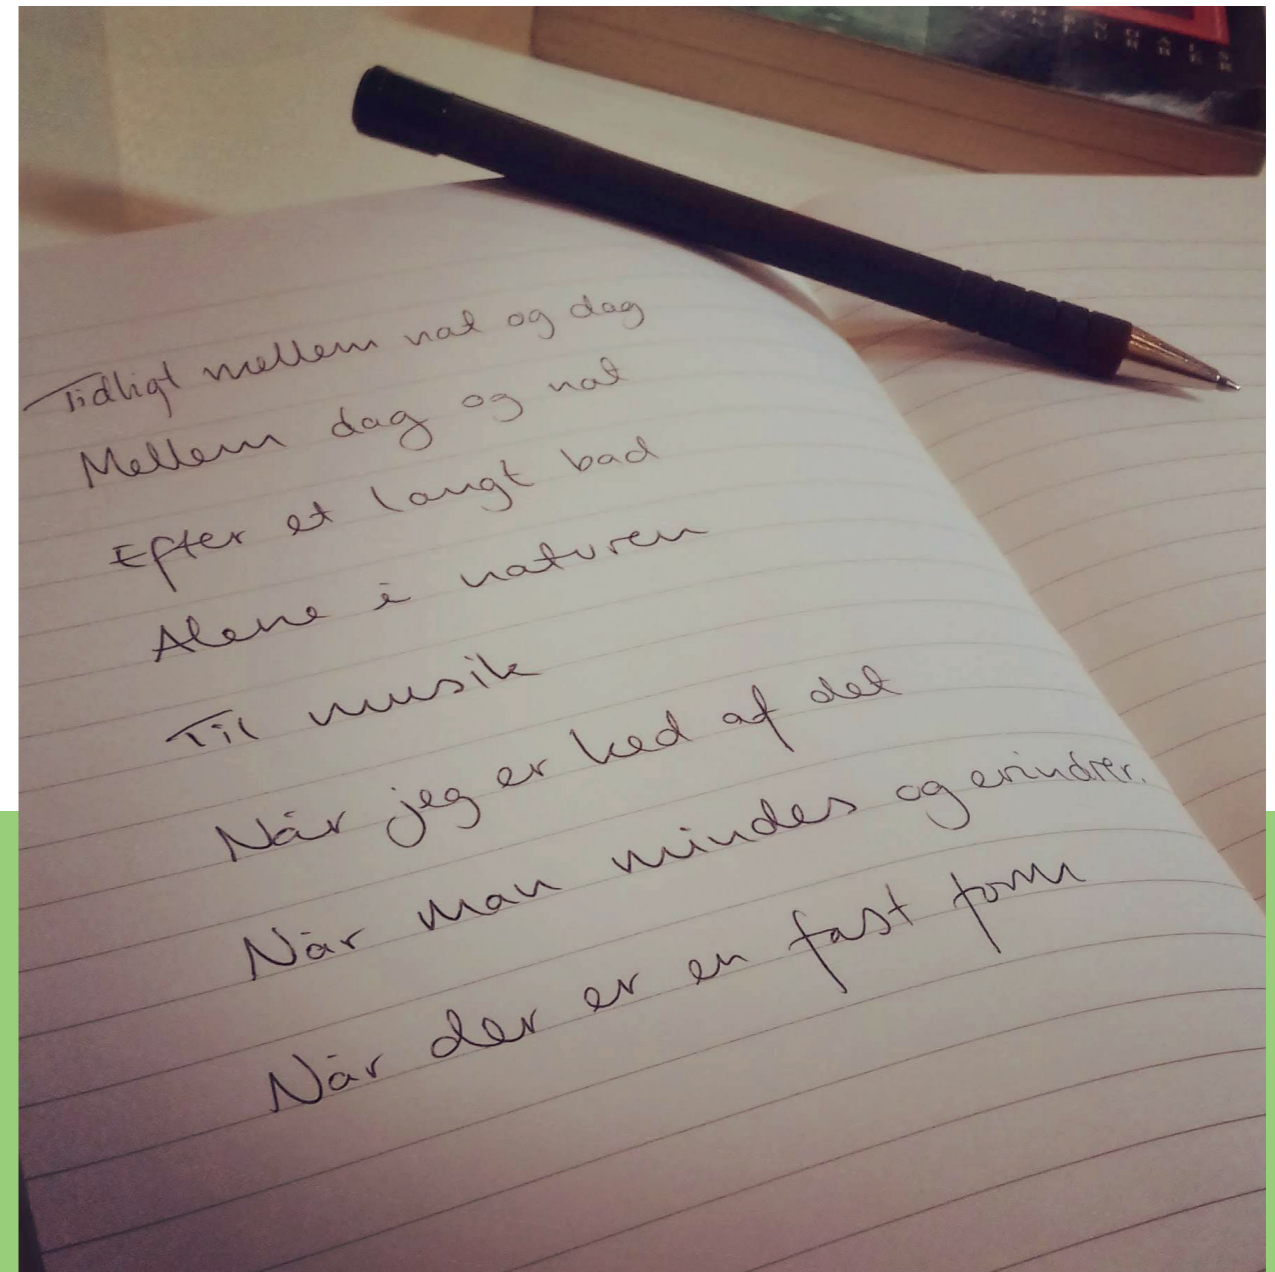 Tidligt mellem nat og dag
Mellem dag og nat
Efter et langt bad
Alene i naturen
Til musik
Når jeg er ked af det
Når man mindes og erindrer.
Når der er en fast form